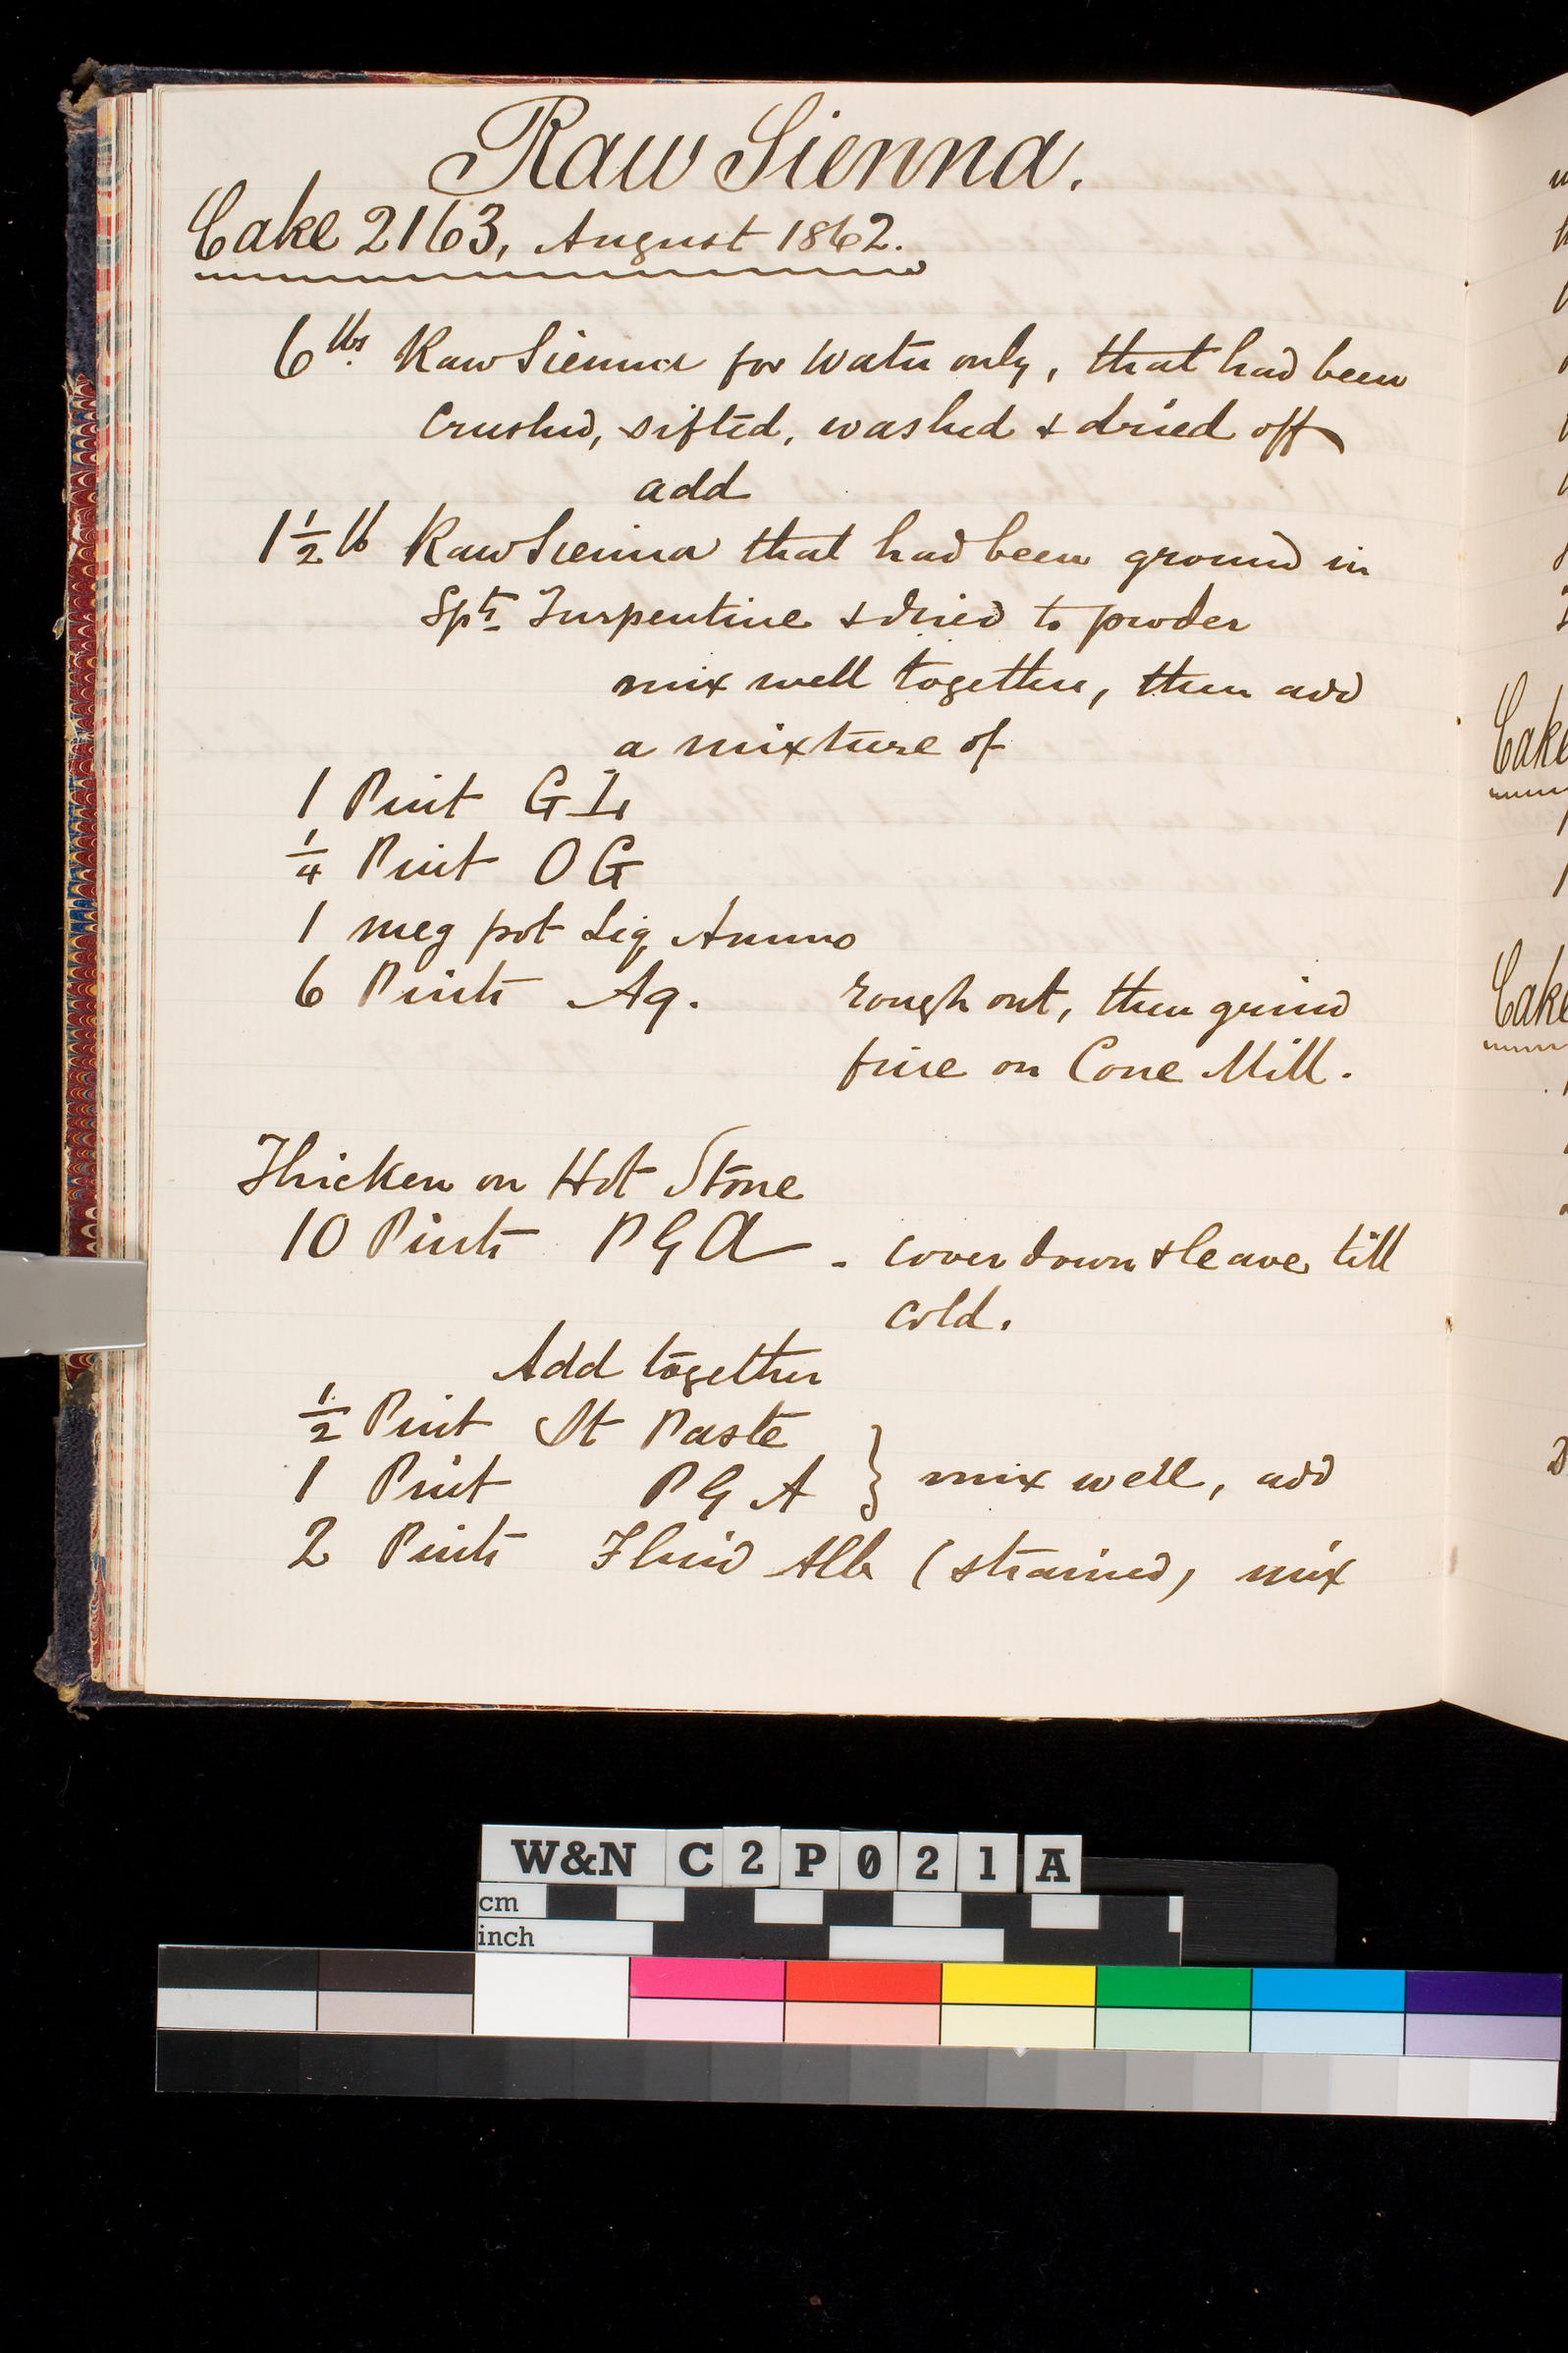 Raw Sienna.
Cake 2163, August 1862.
6 lbs. Raw Sienna for Water only, that had been
Crushed, sifted, washed & dried off
add
1½ lb Raw Sienna that had been ground in
Spts Turpentine & dried to powder
mix well together, then add
a mixture of
1 Pint G
¼ Pint O G
1 meg pot Liq Ammo
6 Pints Aq. rough out, then grind
fine on Cone Mill.
Thicken on Hot Stone
10 Pints P G A - cover down & leave till
cold.
Add together
½ Pint St Paste
1 Pint P G A } mix well, add
2 Pints Fluid Alb (strained) mix
Cake
Cake
W&N C2P021A
cm
inch